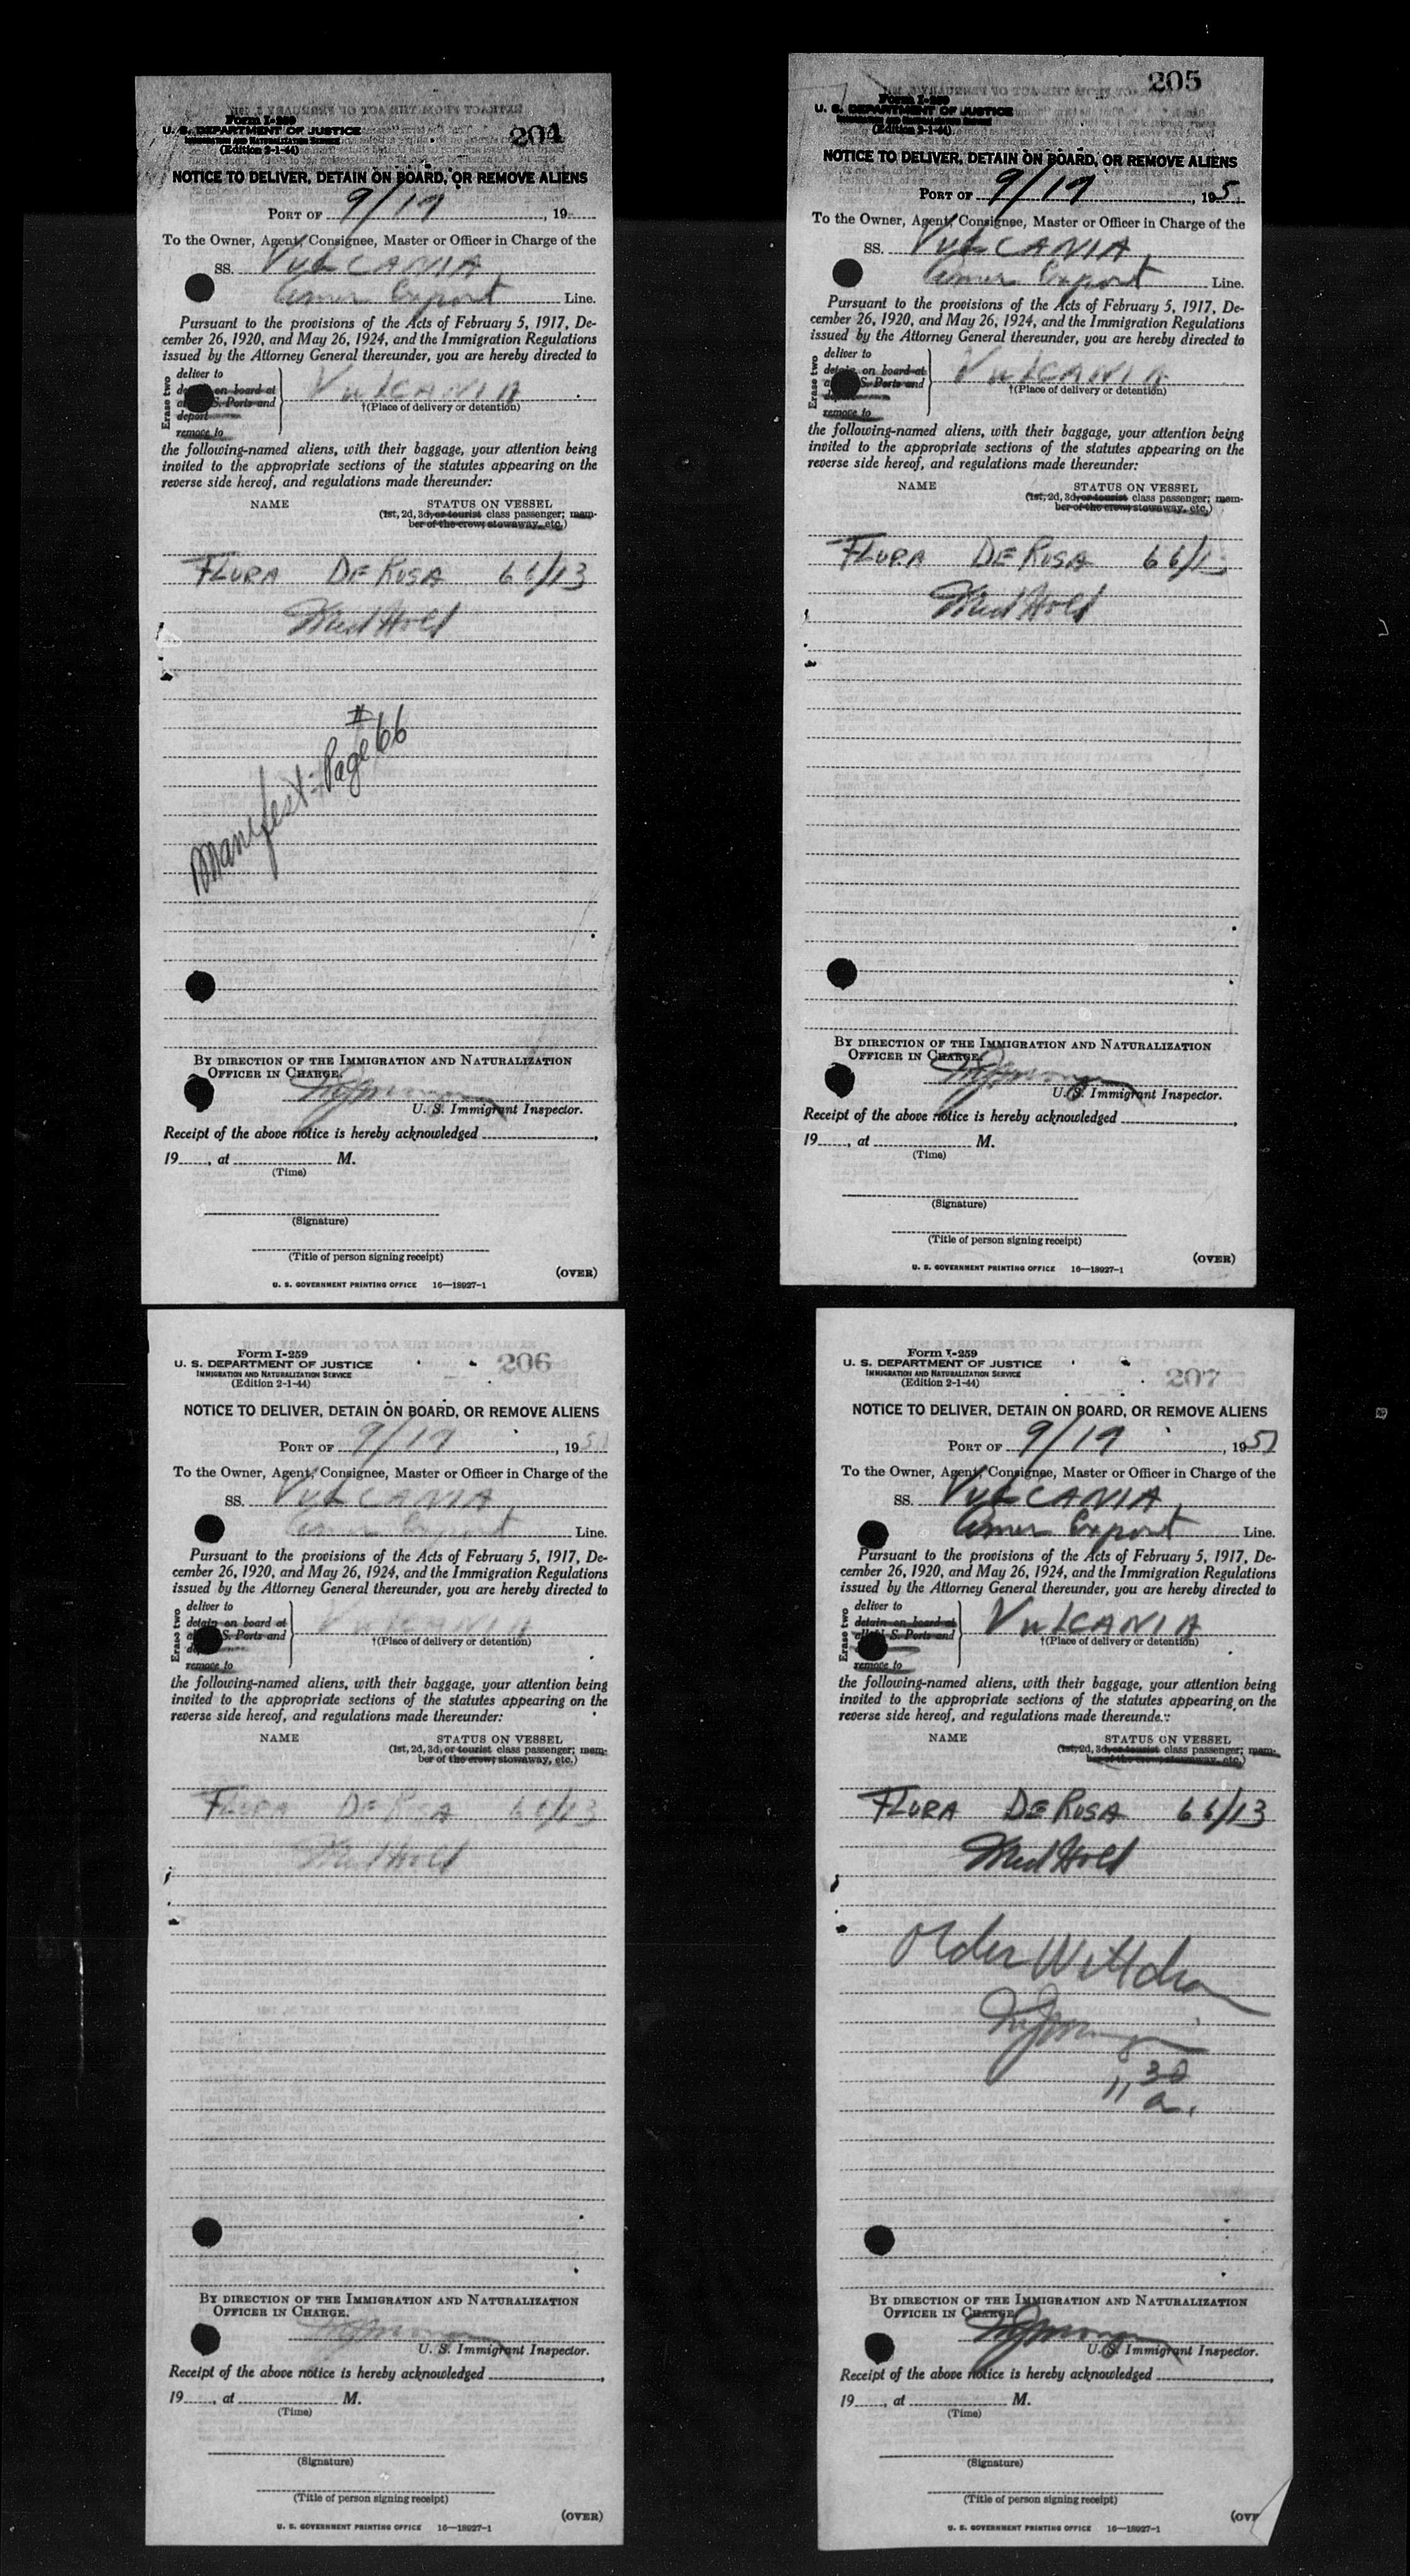 Form I-259
U. S. DEPARTMENT OF JUSTICE
IMMIGRATION AND NATURALIZATION SERVICE
(Edition 2-1-44)
204
NOTICE TO DELIVER, DETAIN ON BOARD, OR REMOVE ALIENS
PORT OF 9/17, 19
To the Owner, Agent, Consignee, Master or Officer in Charge of the
SS. VULCANIA,
Amer Export Line.
Pursuant to the provisions of the Acts of February 5, 1917, De-
cember 26, 1920, and May 26, 1924, and the Immigration Regulations
issued by the Attorney General thereunder, you are hereby directed to
Erase two
deliver to
on board at
S. Ports and
deport
remove to
VULCANIA
†(Place of delivery or detention)
the following-named aliens, with their baggage, your attention being
invited to the appropriate sections of the statutes appearing on the
reverse side hereof, and regulations made thereunder:
NAME STATUS ON VESSEL
(1st, 2d, 3d, or tourist class passenger; mem-
ber of the crew; stowaway, etc.)
FLORA DE ROSA 66/13
Med Hold
Manifest: Page #66
BY DIRECTION OF THE IMMIGRATION AND NATURALIZATION
OFFICER IN CHARGE.
U. S. Immigrant Inspector.
Receipt of the above notice is hereby acknowledged
19, at M.
(Time)
(Signature)
(Title of person signing receipt)
(OVER)
U. S. GOVERNMENT PRINTING OFFICE 16—18927-1
205
Form I-259
U. S. DEPARTMENT OF JUSTICE
IMMIGRATION AND NATURALIZATION SERVICE
(Edition 2-1-44)
NOTICE TO DELIVER, DETAIN ON BOARD, OR REMOVE ALIENS
PORT OF 9/17, 195
To the Owner, Agent, Consignee, Master or Officer in Charge of the
SS. VULCANIA,
Amer Export Line.
Pursuant to the provisions of the Acts of February 5, 1917, De-
cember 26, 1920, and May 26, 1924, and the Immigration Regulations
issued by the Attorney General thereunder, you are hereby directed to
Erase two
deliver to
detain on board at
S. Ports and
remove to
VULCANIA
†(Place of delivery or detention)
the following-named aliens, with their baggage, your attention being
invited to the appropriate sections of the statutes appearing on the
reverse side hereof, and regulations made thereunder:
NAME STATUS ON VESSEL
(1st, 2d, 3d, or tourist class passenger; mem-
ber of the crew; stowaway, etc.)
FLORA DE ROSA 66/13
Med Hold
BY DIRECTION OF THE IMMIGRATION AND NATURALIZATION
OFFICER IN CHARGE.
U. S. Immigrant Inspector.
Receipt of the above notice is hereby acknowledged
19, at M.
(Time)
(Signature)
(Title of person signing receipt)
(OVER)
U. S. GOVERNMENT PRINTING OFFICE 16—18927-1
Form I-259
U. S. DEPARTMENT OF JUSTICE
IMMIGRATION AND NATURALIZATION SERVICE
(Edition 2-1-44)
206
NOTICE TO DELIVER, DETAIN ON BOARD, OR REMOVE ALIENS
PORT OF 9/17, 1951
To the Owner, Agent, Consignee, Master or Officer in Charge of the
SS. VULCANIA,
Amer Export Line.
Pursuant to the provisions of the Acts of February 5, 1917, De-
cember 26, 1920, and May 26, 1924, and the Immigration Regulations
issued by the Attorney General thereunder, you are hereby directed to
Erase two
deliver to
detain on board at
S. Ports and
remove to
VULCANIA
†(Place of delivery or detention)
the following-named aliens, with their baggage, your attention being
invited to the appropriate sections of the statutes appearing on the
reverse side hereof, and regulations made thereunder:
NAME STATUS ON VESSEL
(1st, 2d, 3d, or tourist class passenger; mem-
ber of the crew; stowaway, etc.)
FLORA DE ROSA 66/13
Med Hold
BY DIRECTION OF THE IMMIGRATION AND NATURALIZATION
OFFICER IN CHARGE.
U. S. Immigrant Inspector.
Receipt of the above notice is hereby acknowledged
19, at M.
(Time)
(Signature)
(Title of person signing receipt)
(OVER)
U. S. GOVERNMENT PRINTING OFFICE 16—18927-1
Form I-259
U. S. DEPARTMENT OF JUSTICE
IMMIGRATION AND NATURALIZATION SERVICE
(Edition 2-1-44)
207
NOTICE TO DELIVER, DETAIN ON BOARD, OR REMOVE ALIENS
PORT OF 9/17, 1951
To the Owner, Agent, Consignee, Master or Officer in Charge of the
SS. VULCANIA,
Amer Export Line.
Pursuant to the provisions of the Acts of February 5, 1917, De-
cember 26, 1920, and May 26, 1924, and the Immigration Regulations
issued by the Attorney General thereunder, you are hereby directed to
Erase two
deliver to
detain on board at
S. Ports and
remove to
VULCANIA
†(Place of delivery or detention)
the following-named aliens, with their baggage, your attention being
invited to the appropriate sections of the statutes appearing on the
reverse side hereof, and regulations made thereunder:
NAME STATUS ON VESSEL
(1st, 2d, 3d, or tourist class passenger; mem-
ber of the crew; stowaway, etc.)
FLORA DE ROSA 66/13
Med Hold
Order Withdrawn
11 30
a.
BY DIRECTION OF THE IMMIGRATION AND NATURALIZATION
OFFICER IN CHARGE.
U. S. Immigrant Inspector.
Receipt of the above notice is hereby acknowledged
19, at M.
(Time)
(Signature)
(Title of person signing receipt)
(OV
U. S. GOVERNMENT PRINTING OFFICE 16—18927-1